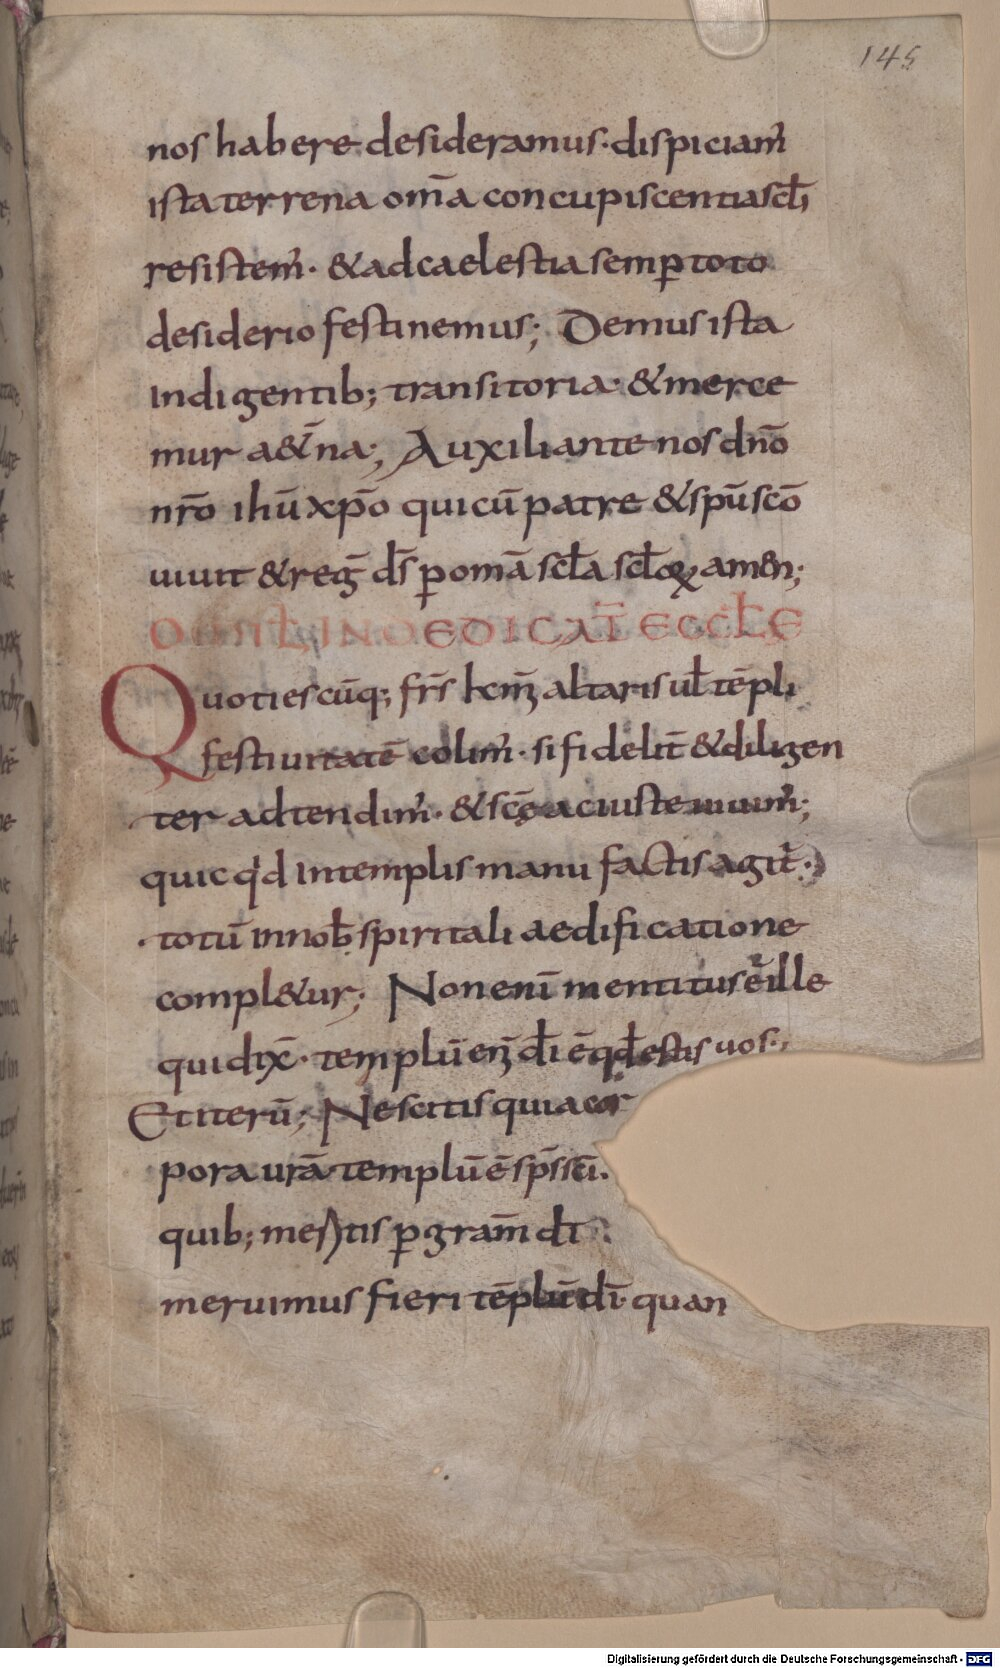 145
nos habere desideramus· dispiciam̄
ista terrena om̄a concupiscentias scl̄i
resistem̄· & ad caelestia semp̄ toto
desiderio festinemus; Demus ista
Indigentib; transitoria· & merce
mur a&̄na; Auxiliante nos dn̄o
nr̄o ihū xp̄o qui cū patre & spū scō
uiuit & reḡ ds̄ p̄ omā scl̄a scl̄oꝝ amen;
IN DEDICAT̄ ECCLE
Quotiescūq; fr̄s kr̄m̄ altaris ul̄ tēpli
festiuitatē colim̄· si fidelit̄ & diligen
ter adtendim̄· & scē ac iuste uiuim̄;
quicq'd In templis manu factis agit̄·
·totū in nob̄ spiritali aedificatione
compl&ur; Non enī mentitus ē ille
qui dix̄· templū enī dī ē qd̄ estis uos·
Et iterū; Nescitis quia cor
pora urā templū ē sps̄ scī·
quib; mestis p̄ gram̄ dī
meruimus fieri tēplū dī· quan
Digitalisierung gefördert durch die Deutsche Forschungsgemeinschaft - DFG